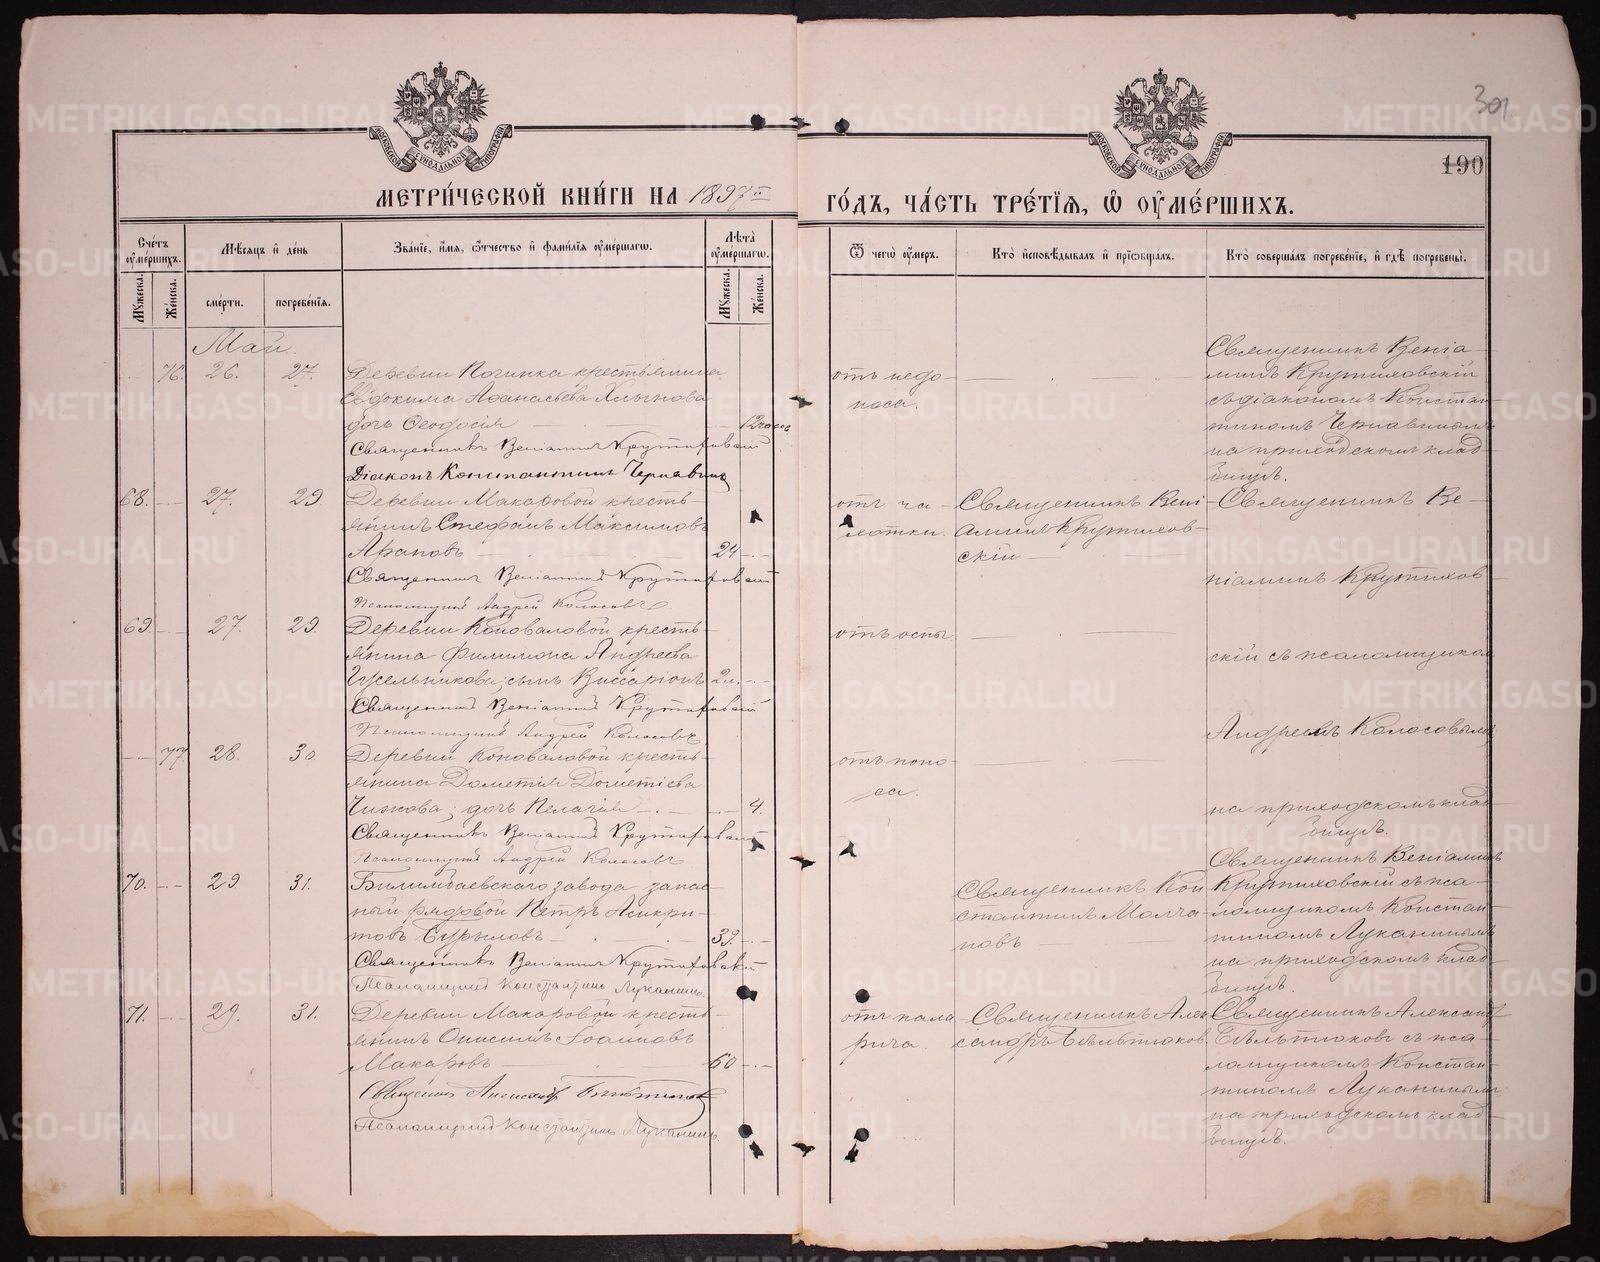 301
190
МОСКОВСКОЙ СѴНОДАЛЬНОЙ ТИПОГРАФІИ
МОСКОВСКОЙ СѴНОДАЛЬНОЙ ТИПОГРАФІИ
МЕТРИ́ЧЕСКОЙ КНИ́ГИ НА 1897й
ГО́ДЪ, ЧА́СТЬ ТРЕ́ТІЯ, Ѡ ОУМЕ́РШИХЪ.
Сче́тъ оуме́ршихъ.
Мꙋ́жеска.
Же́нска.
Мѣ́сяцъ и҆ де́нь
сме́рти.
погребе́нія.
Зва́ніе, и҆́мя, ѻ҆́тчество и҆ фами́лія оуме́ршагѡ.
Лѣта̀ оуме́ршагѡ.
Мꙋ́жеска.
Же́нска.
Ѿ чегѡ̀ оу́меръ.
Кто̀ и҆сповѣ́дывалъ и҆ прїѡбща́лъ.
Кто̀ соверша́лъ погребе́ніе, и҆ гдѣ̀ погребены̀.
Май.
76. 26. 27.
Деревни Починка крестьянина
Евдокима Аѳанасьева Хлынова
дочь Ѳеодосія 12 часов
Священникъ Веніаминъ Крутиховскій
Діаконъ Константинъ Чернавинъ
отъ недо-
носа.
Священникъ Веніа-
минъ Крутиховскій
съ діакономъ Констан-
тиномъ Чернавинымъ
на приходскомъ клад-
бищѣ.
68. 27. 29.
Деревни Макаровой кресть-
янинъ Стефанъ Максимовъ
24
Священникъ Веніаминъ Крутиховскій
Псаломщикъ Андрей Колосовъ
отъ ча-
хотки.
Священникъ Вені-
аминъ Крутихов-
скій
Священникъ Ве-
ніаминъ Крутихов-
69. 27. 29.
Деревни Коноваловой кресть-
янина Филимона Андреева
Гусельникова, сынъ Виссаріонъ 2 м.
Священникъ Веніаминъ Крутиховскій
Псаломщикъ Андрей Колосовъ
отъ оспы.
скій съ псаломщиком
Андреемъ Колосовымъ
77. 28. 30.
Деревни Коноваловой кресть-
янина Дометія Дометіева
Чижова, дочь Пелагія 4.
Священникъ Веніаминъ Крутиховскій
Псаломщикъ Андрей Колосовъ
отъ поно-
са.
на приходскомъ клад-
бищѣ.
70. 29 31.
Билимбаевскаго завода запас-
ный рядовой Петръ Асикри-
товъ Бурыловъ 39.
Священникъ Веніаминъ Крутиховскій
Псаломщикъ Константинъ Луканинъ.
Священникъ Кон
стантинъ Молча-
новъ
Священникъ Веніаминъ
Крутиховскій съ пса-
ломщикомъ Констан-
тиномъ Луканинымъ
на приходскомъ клад-
бищѣ.
71. 29. 31.
Деревни Макаровой кресть-
янинъ Онисимъ Іоанновъ
Макаровъ 60
Священникъ Александръ Бѣльтюковъ
Псаломщикъ Константинъ Луканинъ
отъ пала
рича.
Священникъ Алек
сандръ Бѣльтюков.
Священникъ Александръ
Бѣльтюковъ съ пса-
ломщикомъ Констан-
тиномъ Луканинымъ
на приходскомъ клад-
бищѣ.
METRIKI.GASO-URAL.RU